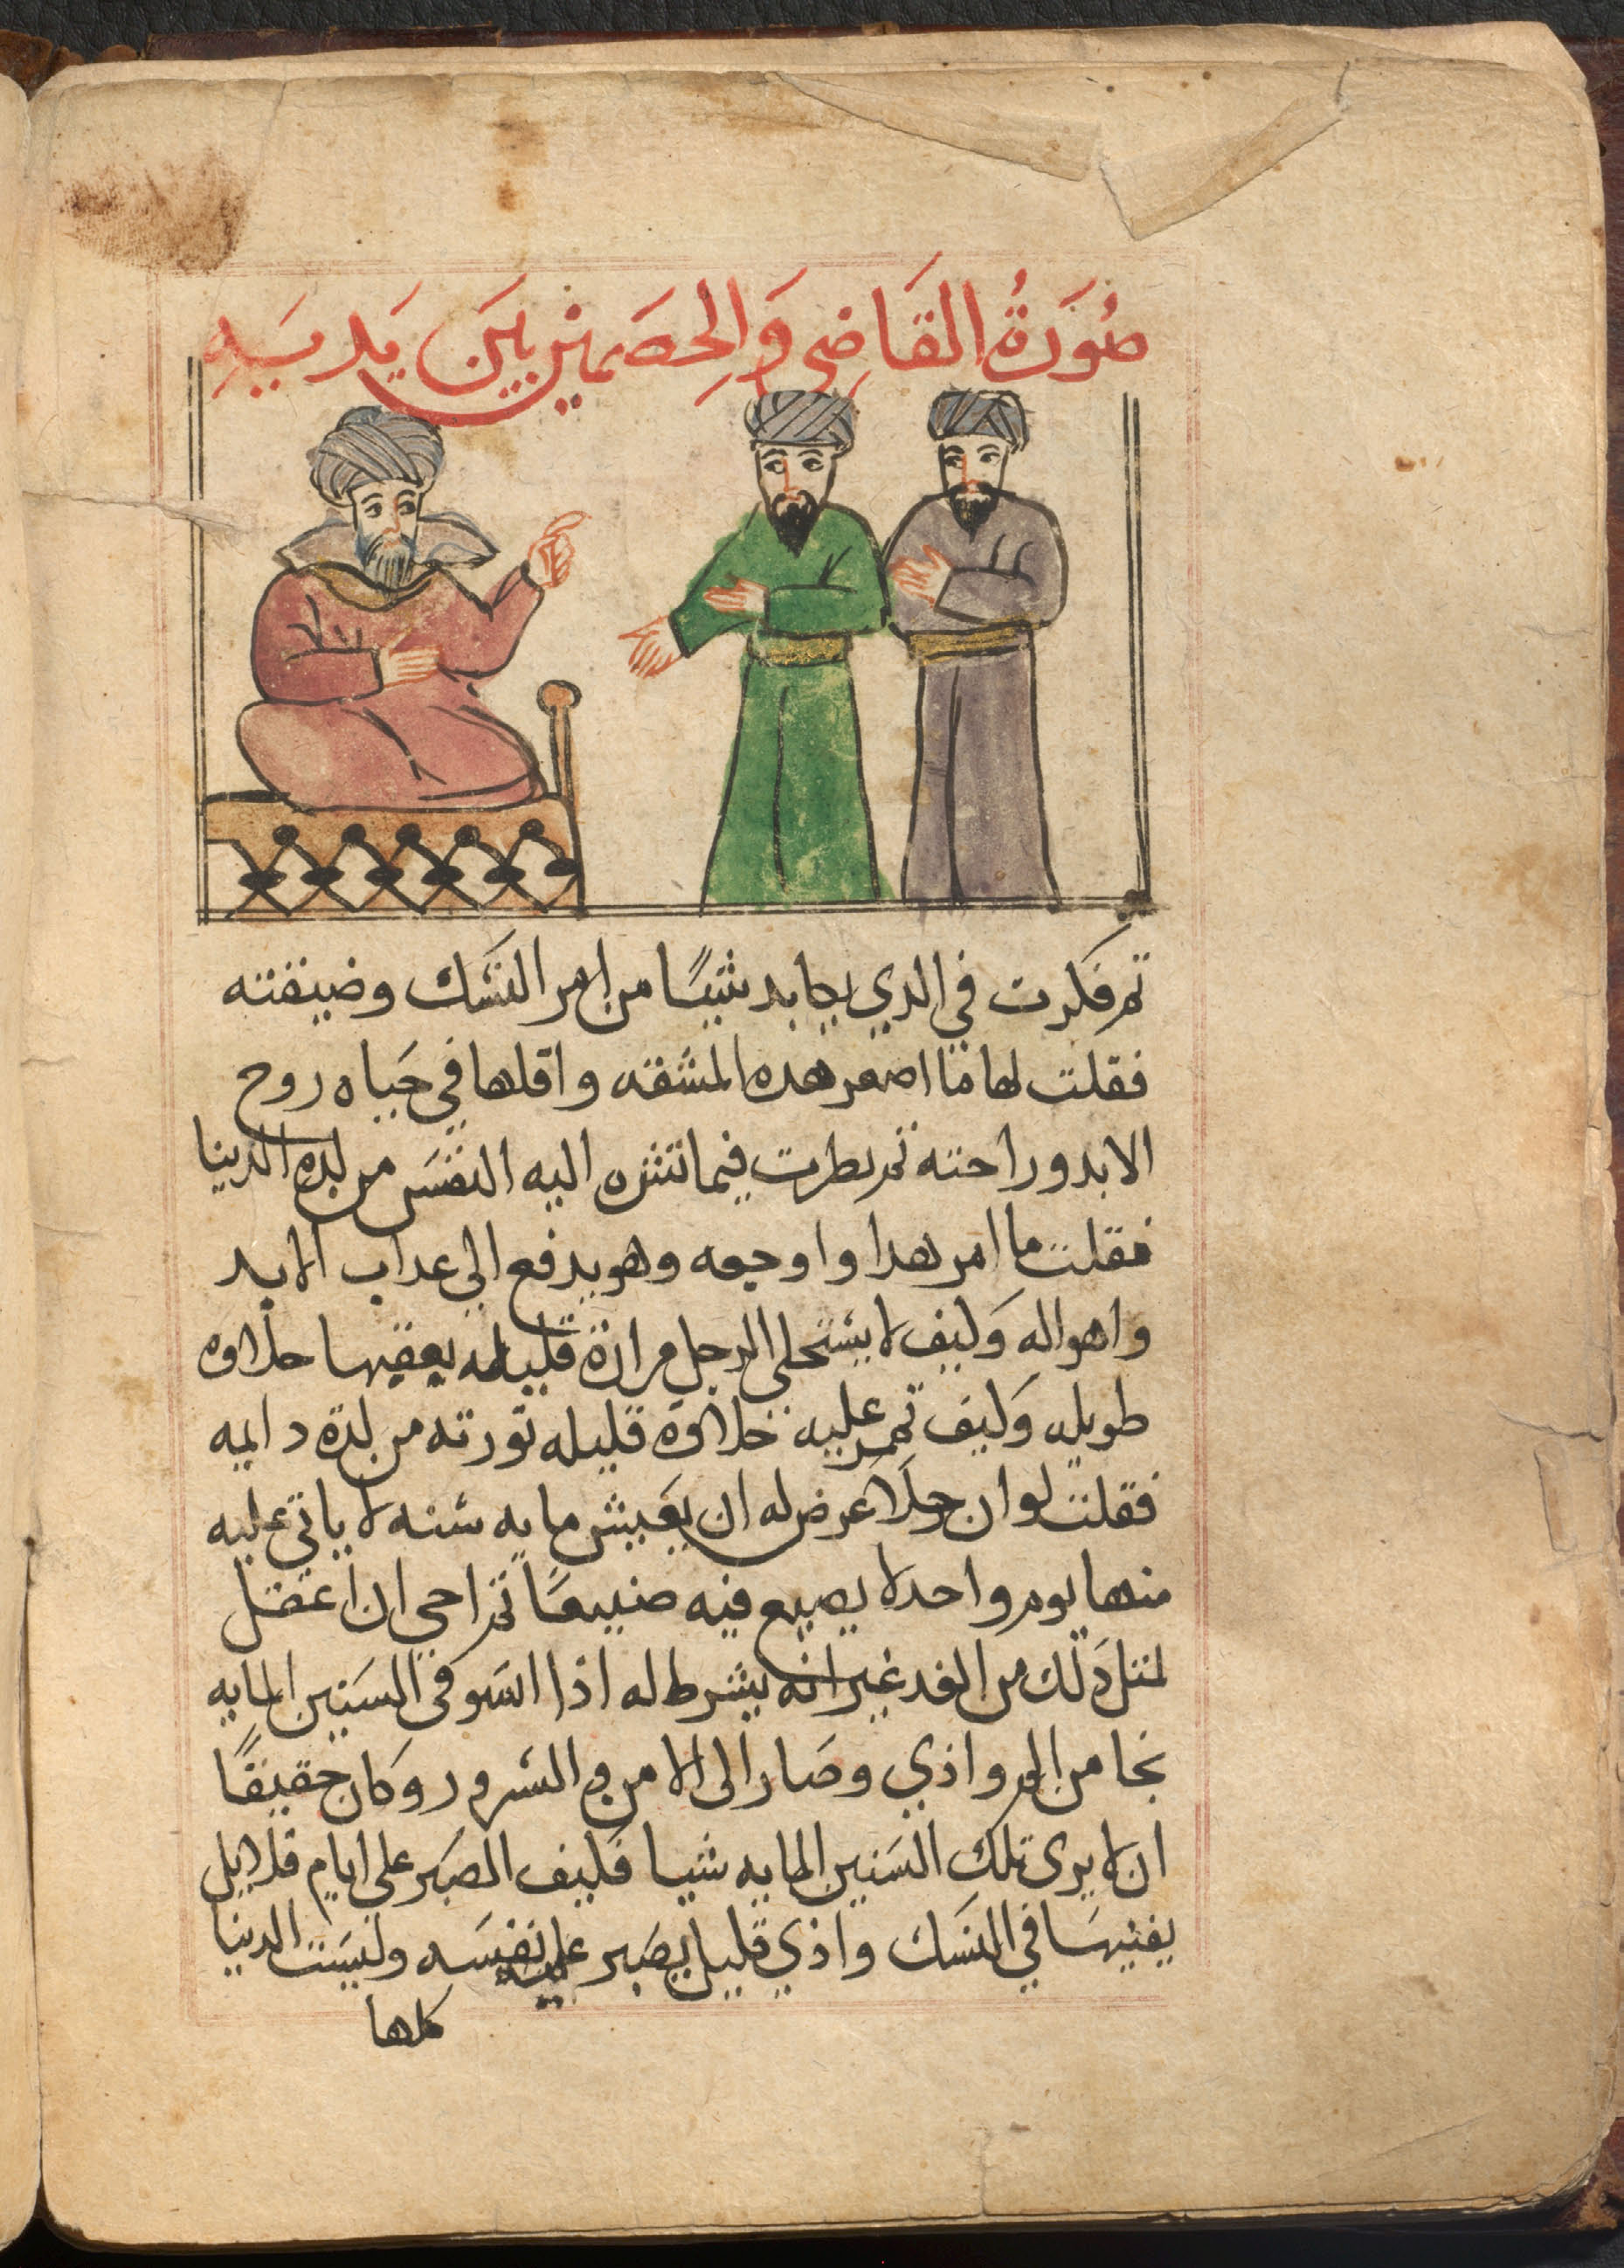 صُوَرَةُ القَاضِي وَالخِصَمَينِ بَينَ يَدَيهِ
تم فكرت في الدي يكابد شيًا من امر النسك وضيقته
فقلت لها ما اصغر هده المشقه واقلها في حياه روح
الابد وراحته تم نظرت فيما تشره اليه النفس من لده الدنيا
فقلت ما امر هدا واوجعه وهو يدفع الي عداب الابد
واهواله وكيف لا يستحلي الرجل مرارة قليله يعقبها حلاوه
طويله وكيف تمر عليه حلاوة قليله تورته من لدة دايمه
فقلت لو ان رجلًا عرض له ان يعيش مايه سنه لا ياتي عليه
منها يوم واحد لا يصيع فيه ضيعًا تم احي ان اعقل
لمتل دلك من الغد غير انه يشرط له اذا استوفي السنين المايه
نجا من الم واذي وصار الى الامن والسرور وكان حقيقًا
ان لا يرى تلك السنين المايه شيا فكيف الصبر علي ايام قلايل
يفنيها في النسك واذي قليل يصبر عليه نفسه وليست الدنيا
كلها